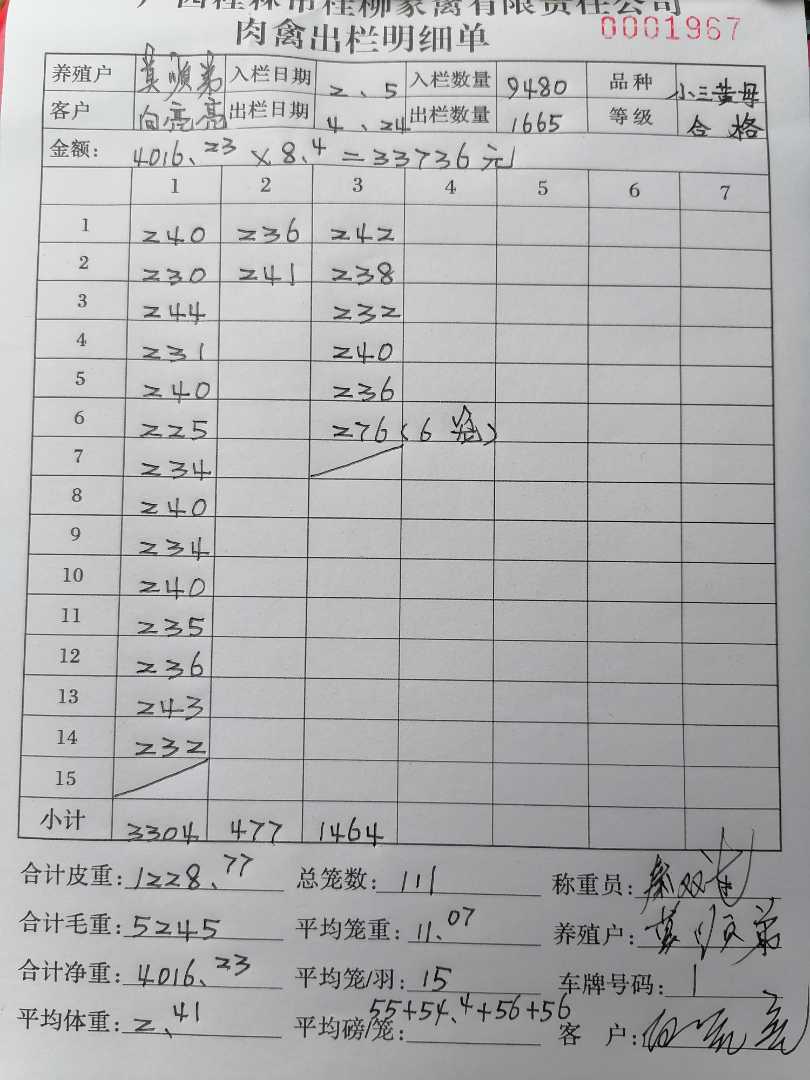 广西桂林市桂柳家禽有限责任公司
肉禽出栏明细单 0001967
养殖户 黄顺弟 入栏日期 2、5 入栏数量 9480 品种 小三黄母
客户 向亮亮 出栏日期 4、24 出栏数量 1665 等级 合格
金额: 4016.23×8.4=33736元
1 2 3 4 5 6 7
1 240 236 242
2 230 241 238
3 244 232
4 231 240
5 240 236
6 225 276(6笼)
7 234
8 240
9 234
10 240
11 235
12 236
13 243
14 232
15
小计 3304 477 1464
合计皮重: 1228.77 总笼数: 111 称重员:
合计毛重: 5245 平均笼重: 11.07 养殖户: 黄顺弟
合计净重: 4016.23 平均笼/羽: 15 车牌号码: 1
平均体重: 2.41 平均磅/笼: 55+54.4+56+56 客 户: 向亮亮